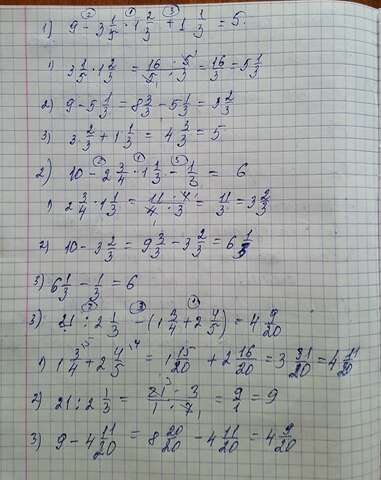 1) 9 - 3 1/5 · 1 2/3 + 1 1/3 = 5.
1) 3 1/5 · 1 2/3 = 16/5 · 5/3 = 16/3 = 5 1/3
2) 9 - 5 1/3 = 8 3/3 - 5 1/3 = 3 2/3
3) 3 2/3 + 1 1/3 = 4 3/3 = 5
2) 10 - 2 3/4 · 1 1/3 - 1/3 = 6
1) 2 3/4 · 1 1/3 = 11/4 · 4/3 = 11/3 = 3 2/3
2) 10 - 3 2/3 = 9 3/3 - 3 2/3 = 6 1/3
3) 6 1/3 - 1/3 = 6
3) 21 : 2 1/3 - (1 3/4 + 2 4/5) = 4 9/20
1) 1 3/4 + 2 4/5 = 1 15/20 + 2 16/20 = 3 31/20 = 4 11/20
2) 21 : 2 1/3 = 21 · 3 / 1 · 7 = 9/1 = 9
3) 9 - 4 11/20 = 8 20/20 - 4 11/20 = 4 9/20